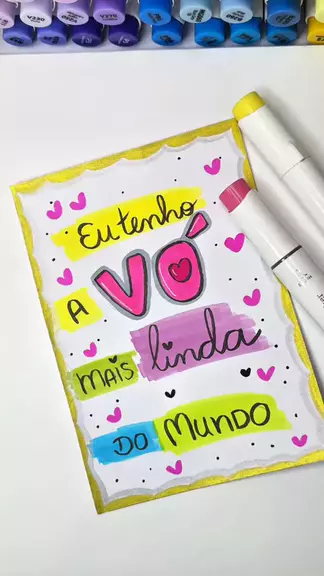 Eu tenho
A VÓ
MAIS linda
DO MUNDO